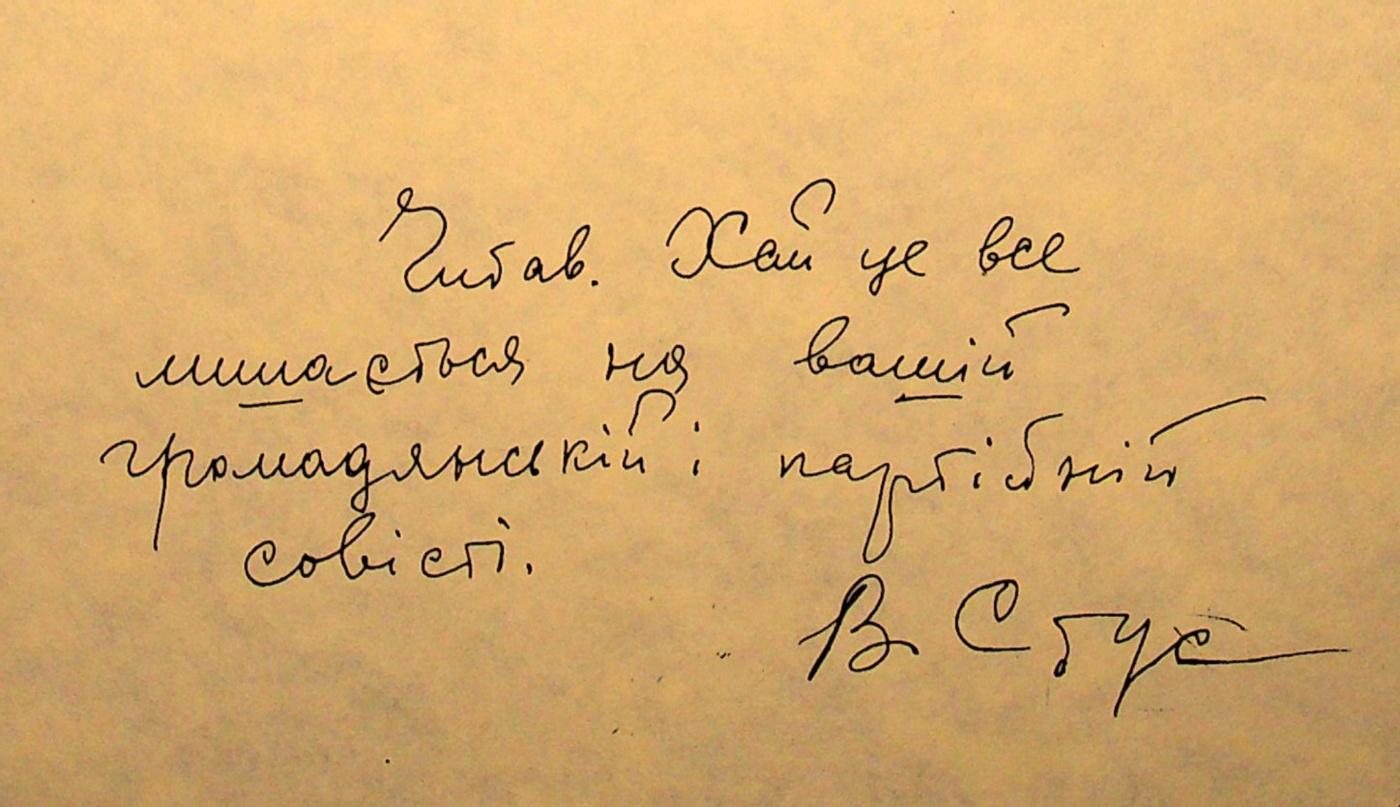 Читав. Хай це все
лишається на вашій
громадянській і партійній
совісті.
В Стус